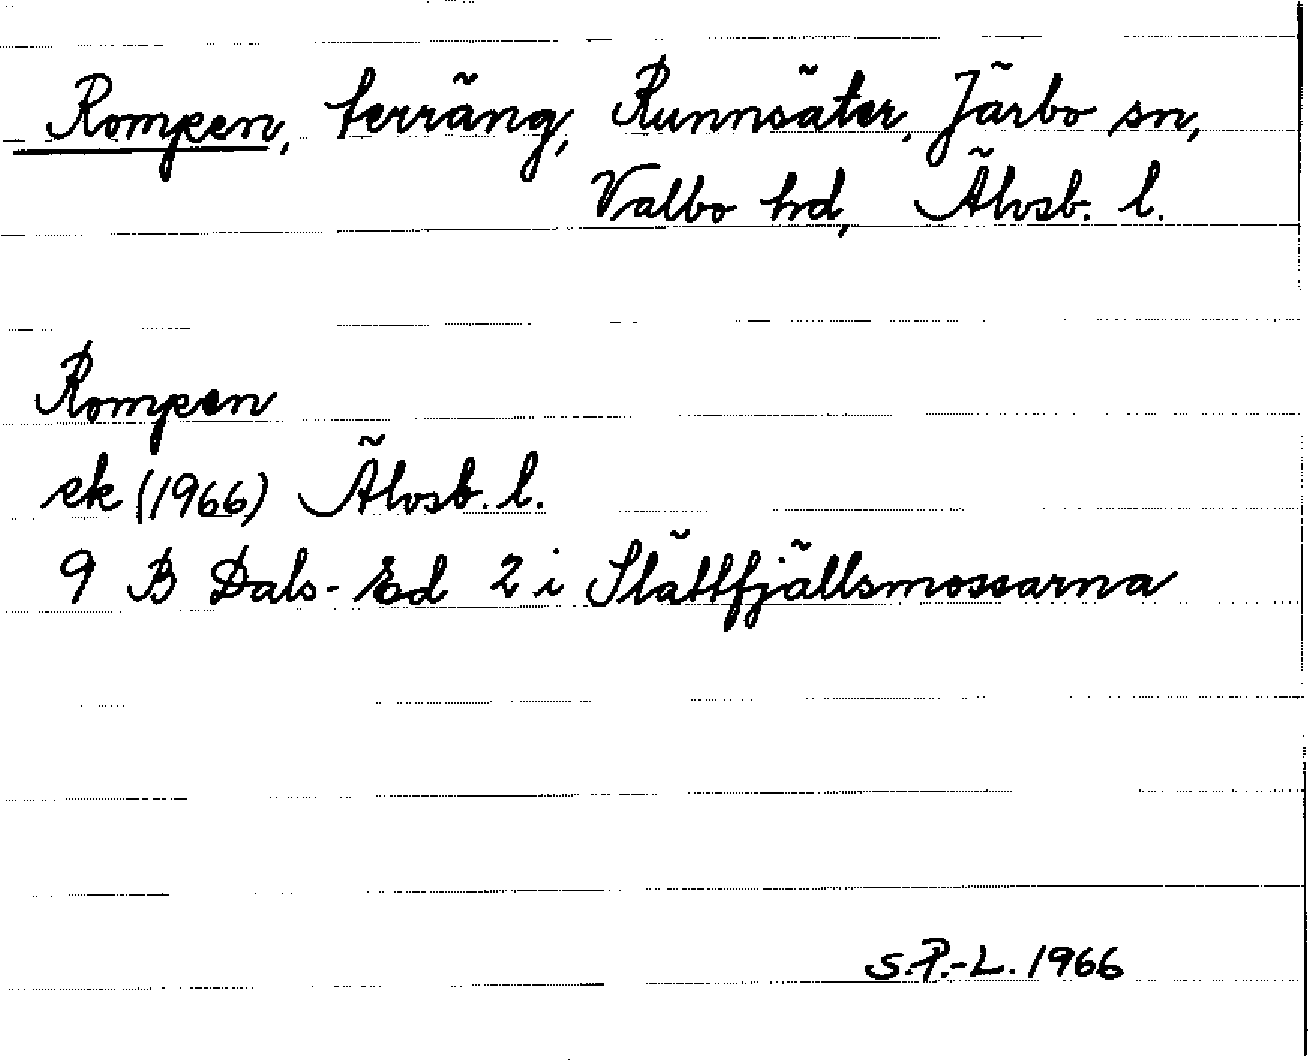 Rompen, terräng, Runnsäter, Järbo sn,
Valbo hd, Älvsb. l.
Rompen
ek (1966) Älvsb. l.
9 B Dals-Ed 2 i Slättfjällsmossarna
S.P.-L. 1966